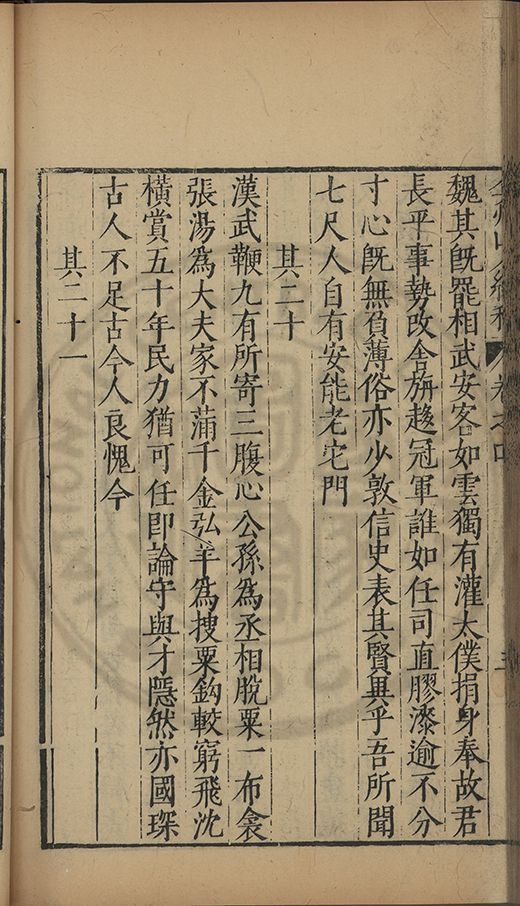 魏其旣罷相武安客如雲獨有灌太僕捐身奉故君
長平事勢改舍旃趍冠軍誰如任司直膠漆逾不分
寸心旣無負薄俗亦少敦信史表其賢異乎吾所聞
七尺人自有安能老宅門
其二十
漢武鞭九有所寄三腹心公孫為丞相脫粟一布衾
張湯為大夫家不蒲千金弘羊為搜粟鈎較窮飛沈
橫賞五十年民力猶可任即論守與才隱然亦國琛
古人不足古今人良愧今
其二十一